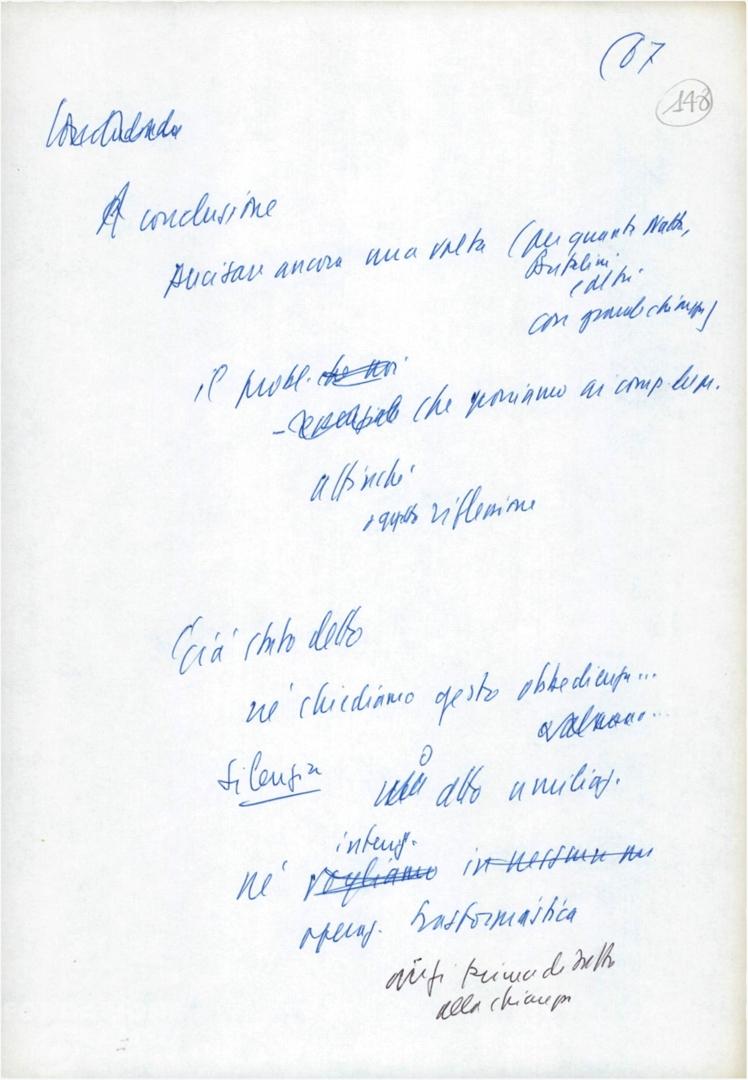 67
148
Concludendo
A conclusione
Precisare ancora una volta (per quanti Natta,
Bufalini
e altri
con grande chiarezza)
il probl. che noi
che poniamo ai comp.
affinché
riflessione
E' già stato detto
né chiediamo gesto obbedienza...
Silenzio
o atto umiliaz.
intenz.
né vogliamo in nessun
operaz. trasformistica
anzi prima di tutto
alla chiarezza